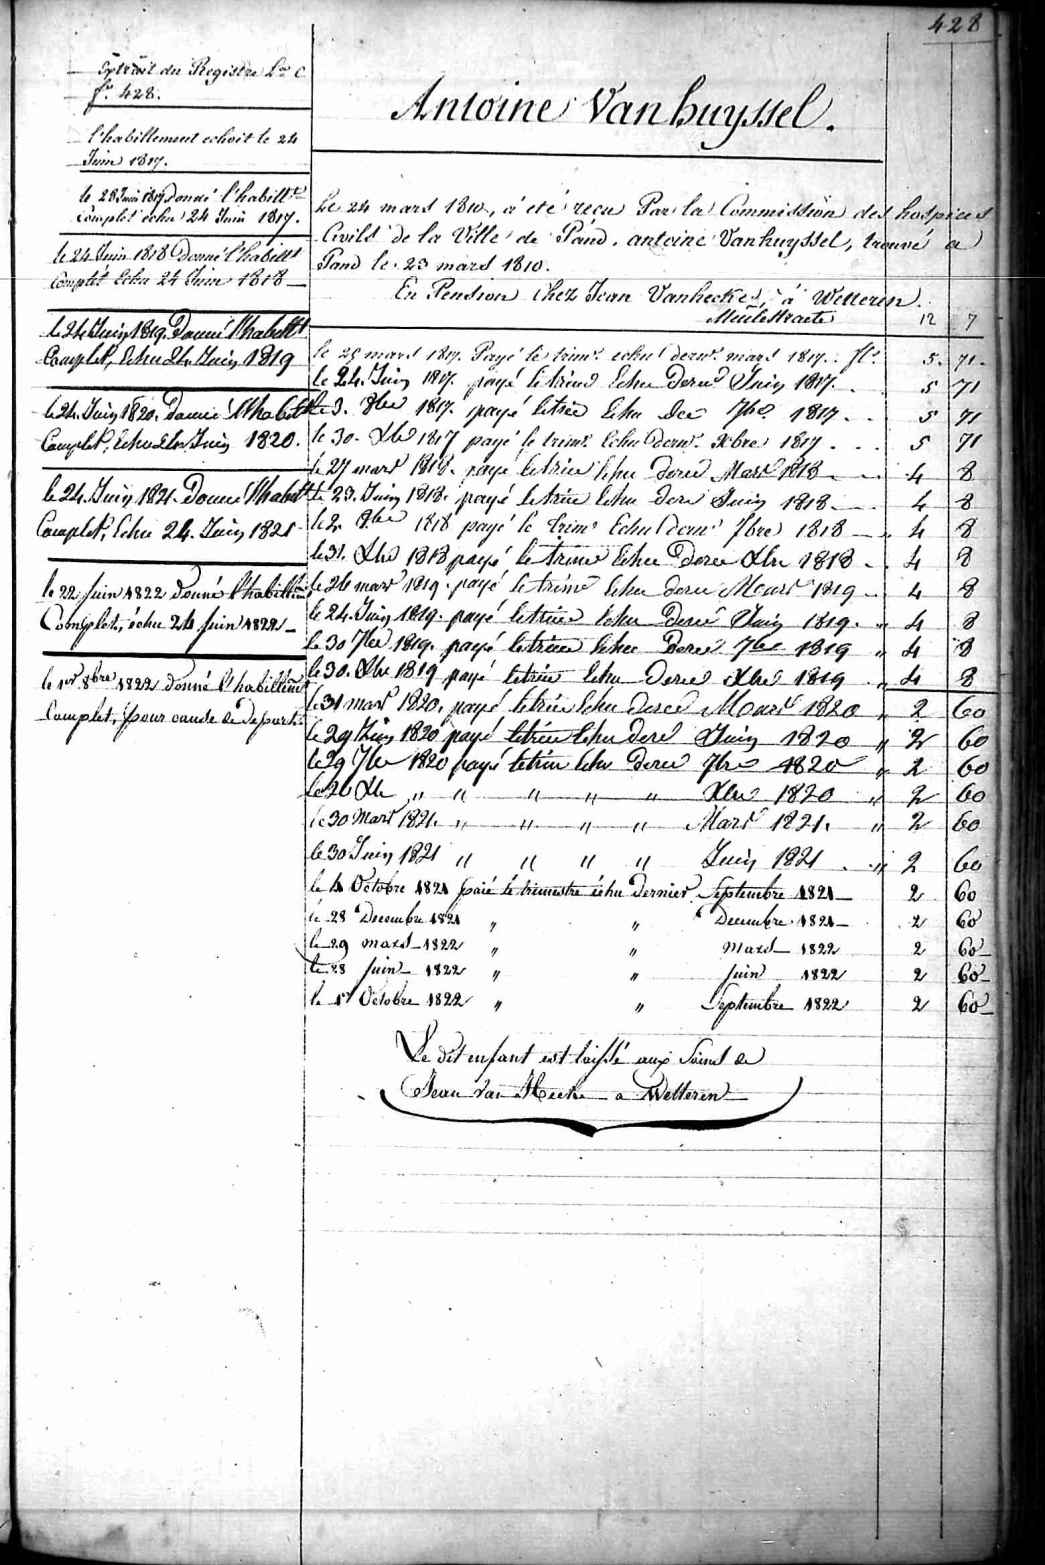 428
Extrait du Registre Lre C
fo. 428.
l'habillement echoit le 24
Juin 1817.
le 28 Juin 1817 donné l'habillt
Complet echu 24 Juin 1817.
le 24 Juin 1818 Donné l'habillt
Complet Echu 24 Juin 1818
le 24 Juin 1819. Donné l'habillt
Complet, Echu 24 Juin 1819
le 24. Juin 1820. Donné l'habillt
Complet, Echu 24 Juin 1820.
le 24. Juin 1821. Donné l'habillt
Complet, Echu 24. Juin 1821
le 22 Juin 1822 Donné l'habillem
Complet, échu 24 Juin 1822
le 1er 8bre 1822 donné l'habillem
Complet, pour cause de depart
Antoine Vanhuyssel.
Le 24 mars 1810, a été reçu Par la Commission des hospices
Civils de la Ville de Gand, antoine Vanhuyssel, trouvé a
Gand le 23 mars 1810.
En Pension Chez Jean Vanhecke, à Wetteren.
12 7
le 29 mars 1817. Payé le trimr. echu dernr. mars 1817. fls. 5. 71.
le 24. Juin 1817. payé le trim Echu dernr Juin 1817. 5 71
le 3. 8bre 1817. payé le trim Echu der 7bre 1817 5 71
le 30. Xbre 1817 payé le trimr. Echu dernr. Xbre 1817 5 71
le 27 mars 1818. payé le trim Echu derer Mars 1818 4 8
le 23. Juin 1818. payé le trim Echu derer Juin 1818 4 8
le 2. 8bre 1818 payé le trimr Echu dernr 7bre 1818 4 8
le 31. Xbre 1818 payé le trime Echu derer Xbre 1818 4 8
le 26 mars 1819. payé le trime Echu derer Mars 1819 4 8
le 24. Juin 1819. payé le trim Echu derer Juin 1819. " 4 8
le 30 7bre 1819. payé le trim Echu Derer 7bre 1819 " 4 8
le 30. Xbre 1819 payé le trim Echu derer Xbre 1819 " 4 8
le 31 mars 1820. payé le trim Echu derer Mars 1820 " 2 60
le 29 Juin 1820 payé le trim Echu derer Juin 1820 " 2 60
le 29 7bre 1820 payé le trim Echu derer 7bre 1820 " 2 60
le 26 Xbre " " " " " Xbre 1820 " 2 60
le 30 Mars 1821. " " " " Mars 1821. " 2 60
le 30 Juin 1821 " " " " Juin 1821 " 2 60
le 4 Octobre 1821 paié le trimestre échu dernier Septembre 1821 2 60
le 28 Decembre 1821 " " Decembre 1821 2 60
le 29 mars 1822 " " mars 1822 2 60
le 28 juin 1822 " " juin 1822 2 60
le 1r Octobre 1822 " " Septembre 1822 2 60
Le dit enfant est laissé aux Soins de
Jean Van Hecke a Wetteren